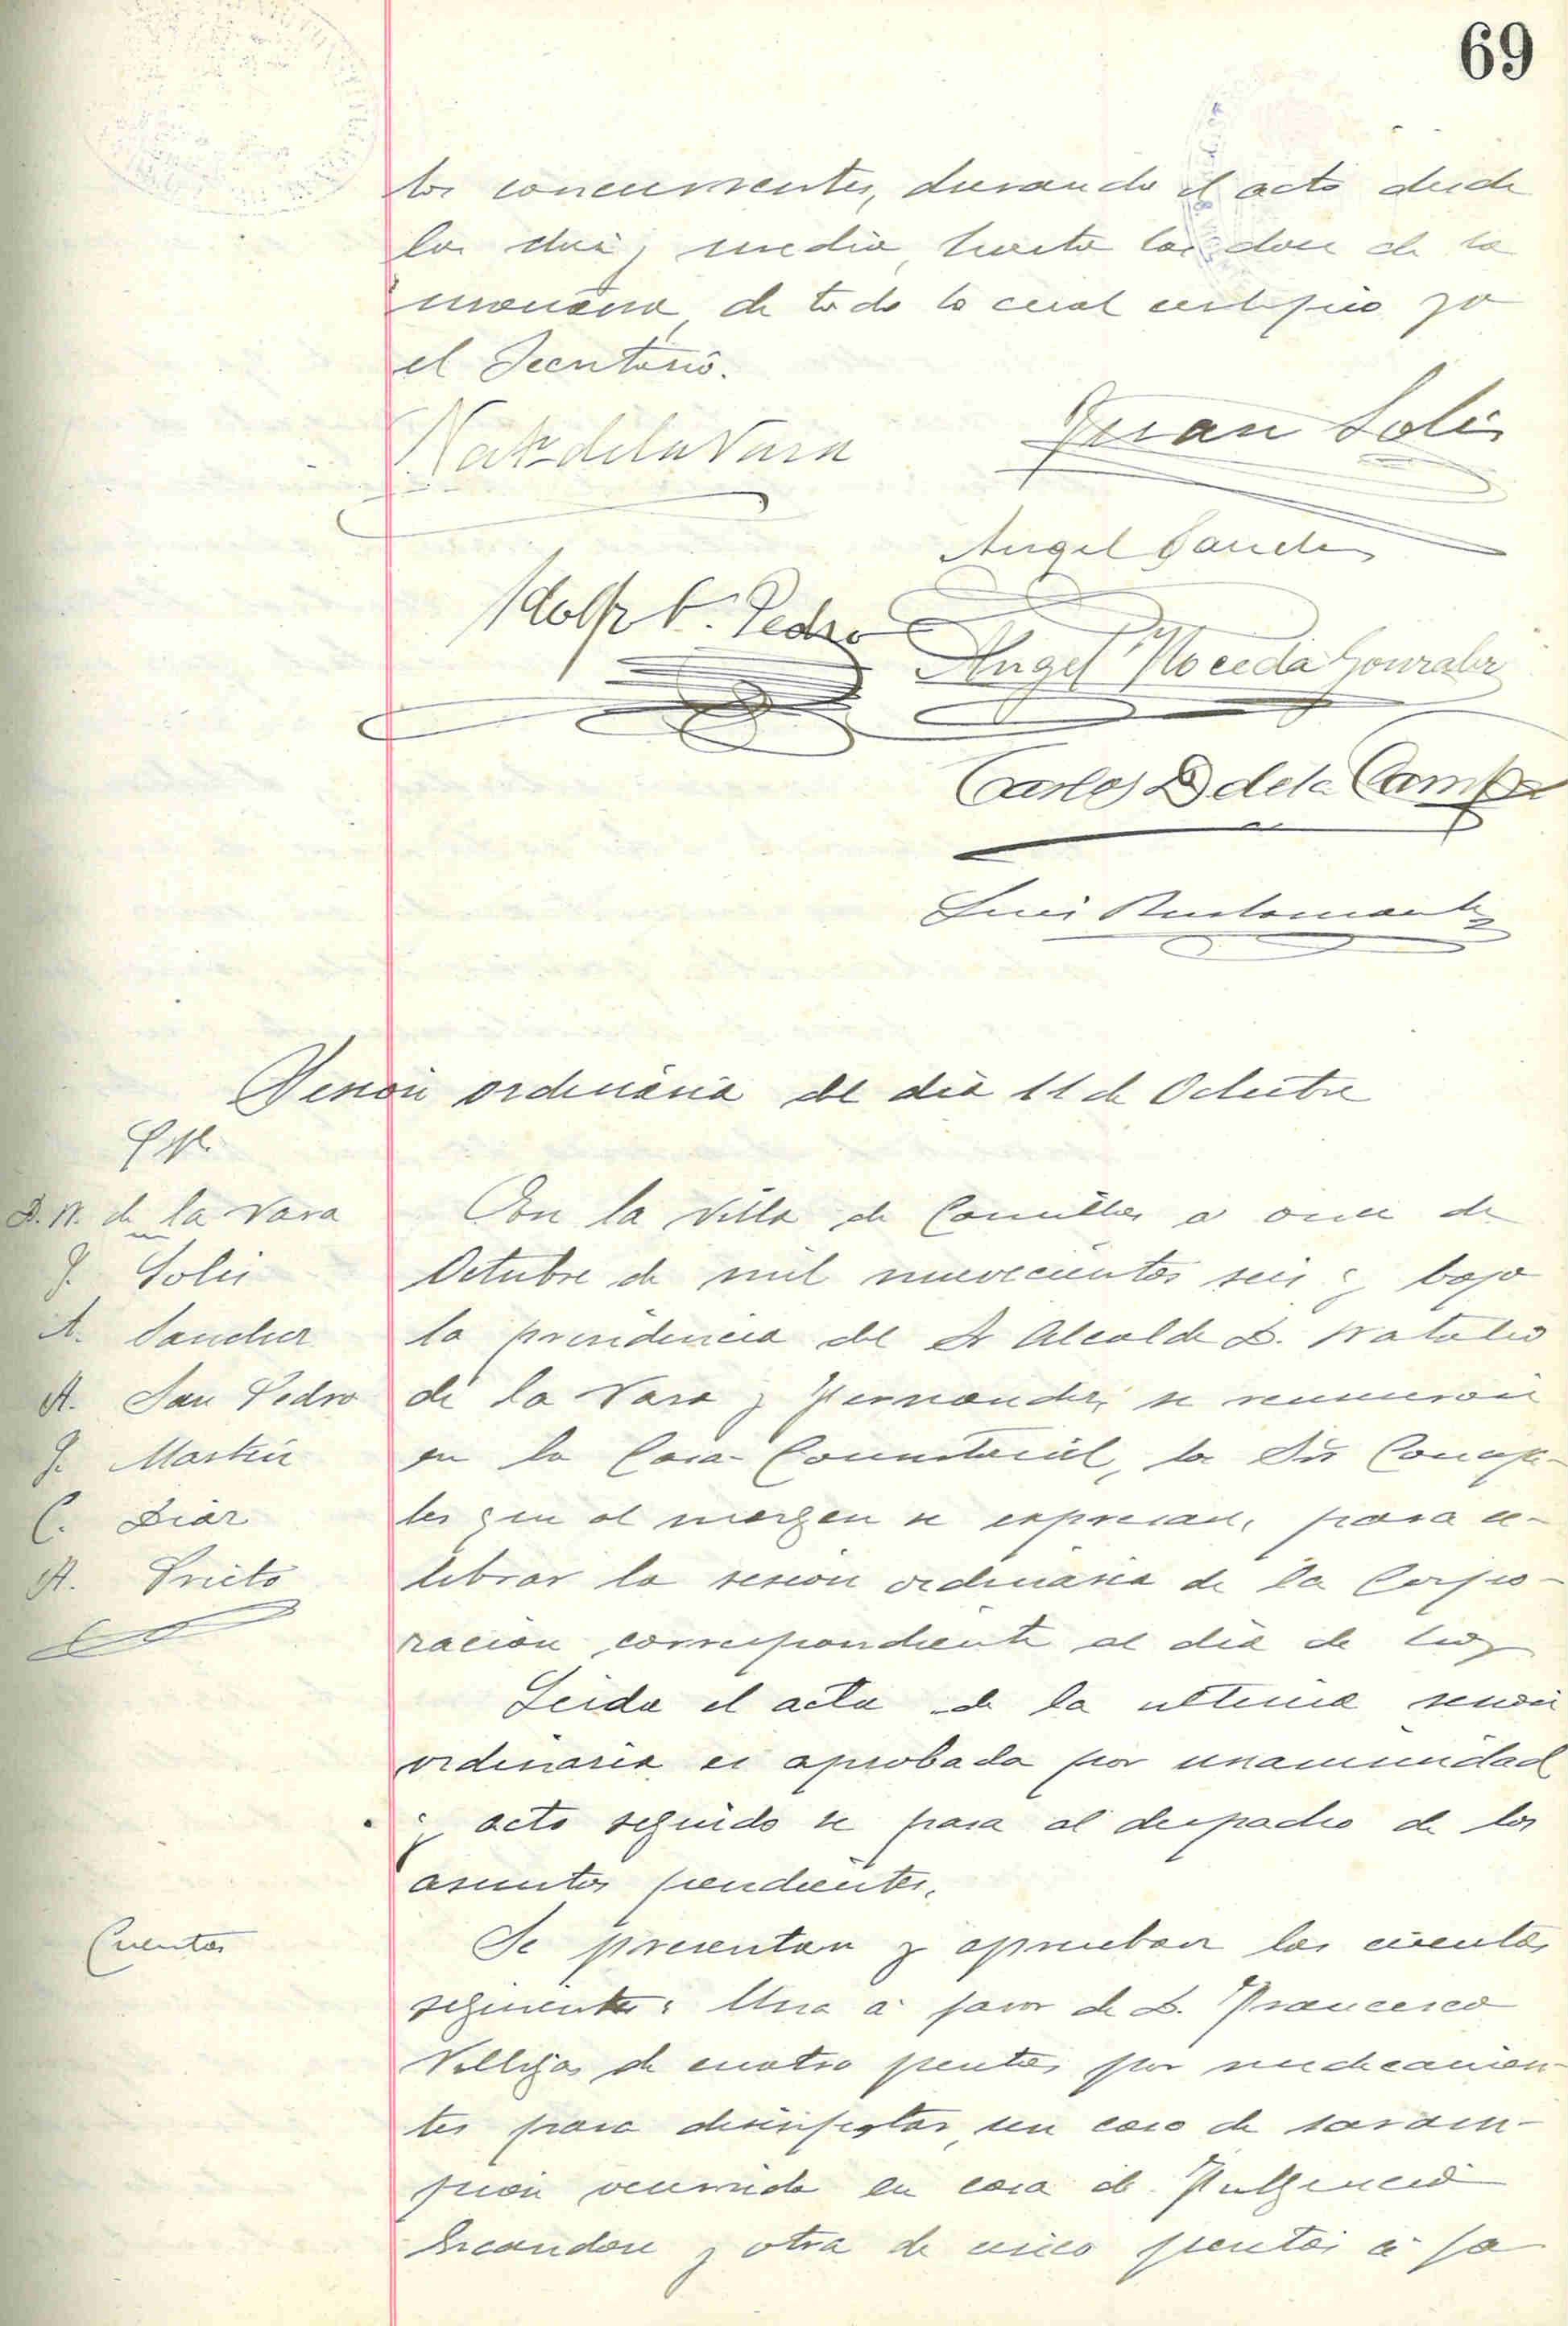 69
los concurrentes, durando el acto desde
las diez y media, hasta las doce de la
mañana, de todo lo cual certifico yo
el Secretario.
Nat. de la Vara
Juan Solis
Angel Sanchez
Adolfo S. Pedro
Angel Noceda Gonzalez
Carlos D de la Campa
Luis Bustamante
Sesión ordinaria del dia 11 de Octubre
D. N. de la Vara
J. Solis
A. Sanchez
A. San Pedro
J. Martin
C. Diaz
A. Prieto
En la Villa de Comillas a once de
Octubre de mil nuevecientos seis y bajo
la presidencia del Sr Alcalde D. Natalio
de la Vara y Fernandez, se reunieron
en la Casa-Consistorial, los Srs Conceja-
les que al margen se expresan, para ce-
lebrar la sesion ordinaria de la Corpo-
racion correspondiente al dia de hoy
Leida el acta de la ultima sesión
ordinaria es aprobada por unanimidad
y acto seguido se pasa al despacho de los
asuntos pendientes.
Cuentas
Se presentan y aprueban las cuentas
siguientes: Una a favor de D. Francisco
Villegas de cuatro pesetas por medicamen-
tos para desinfectar, un caso de saram-
pion ocurrido en casa de Fulgencio
y otra de cinco pesetas a fa